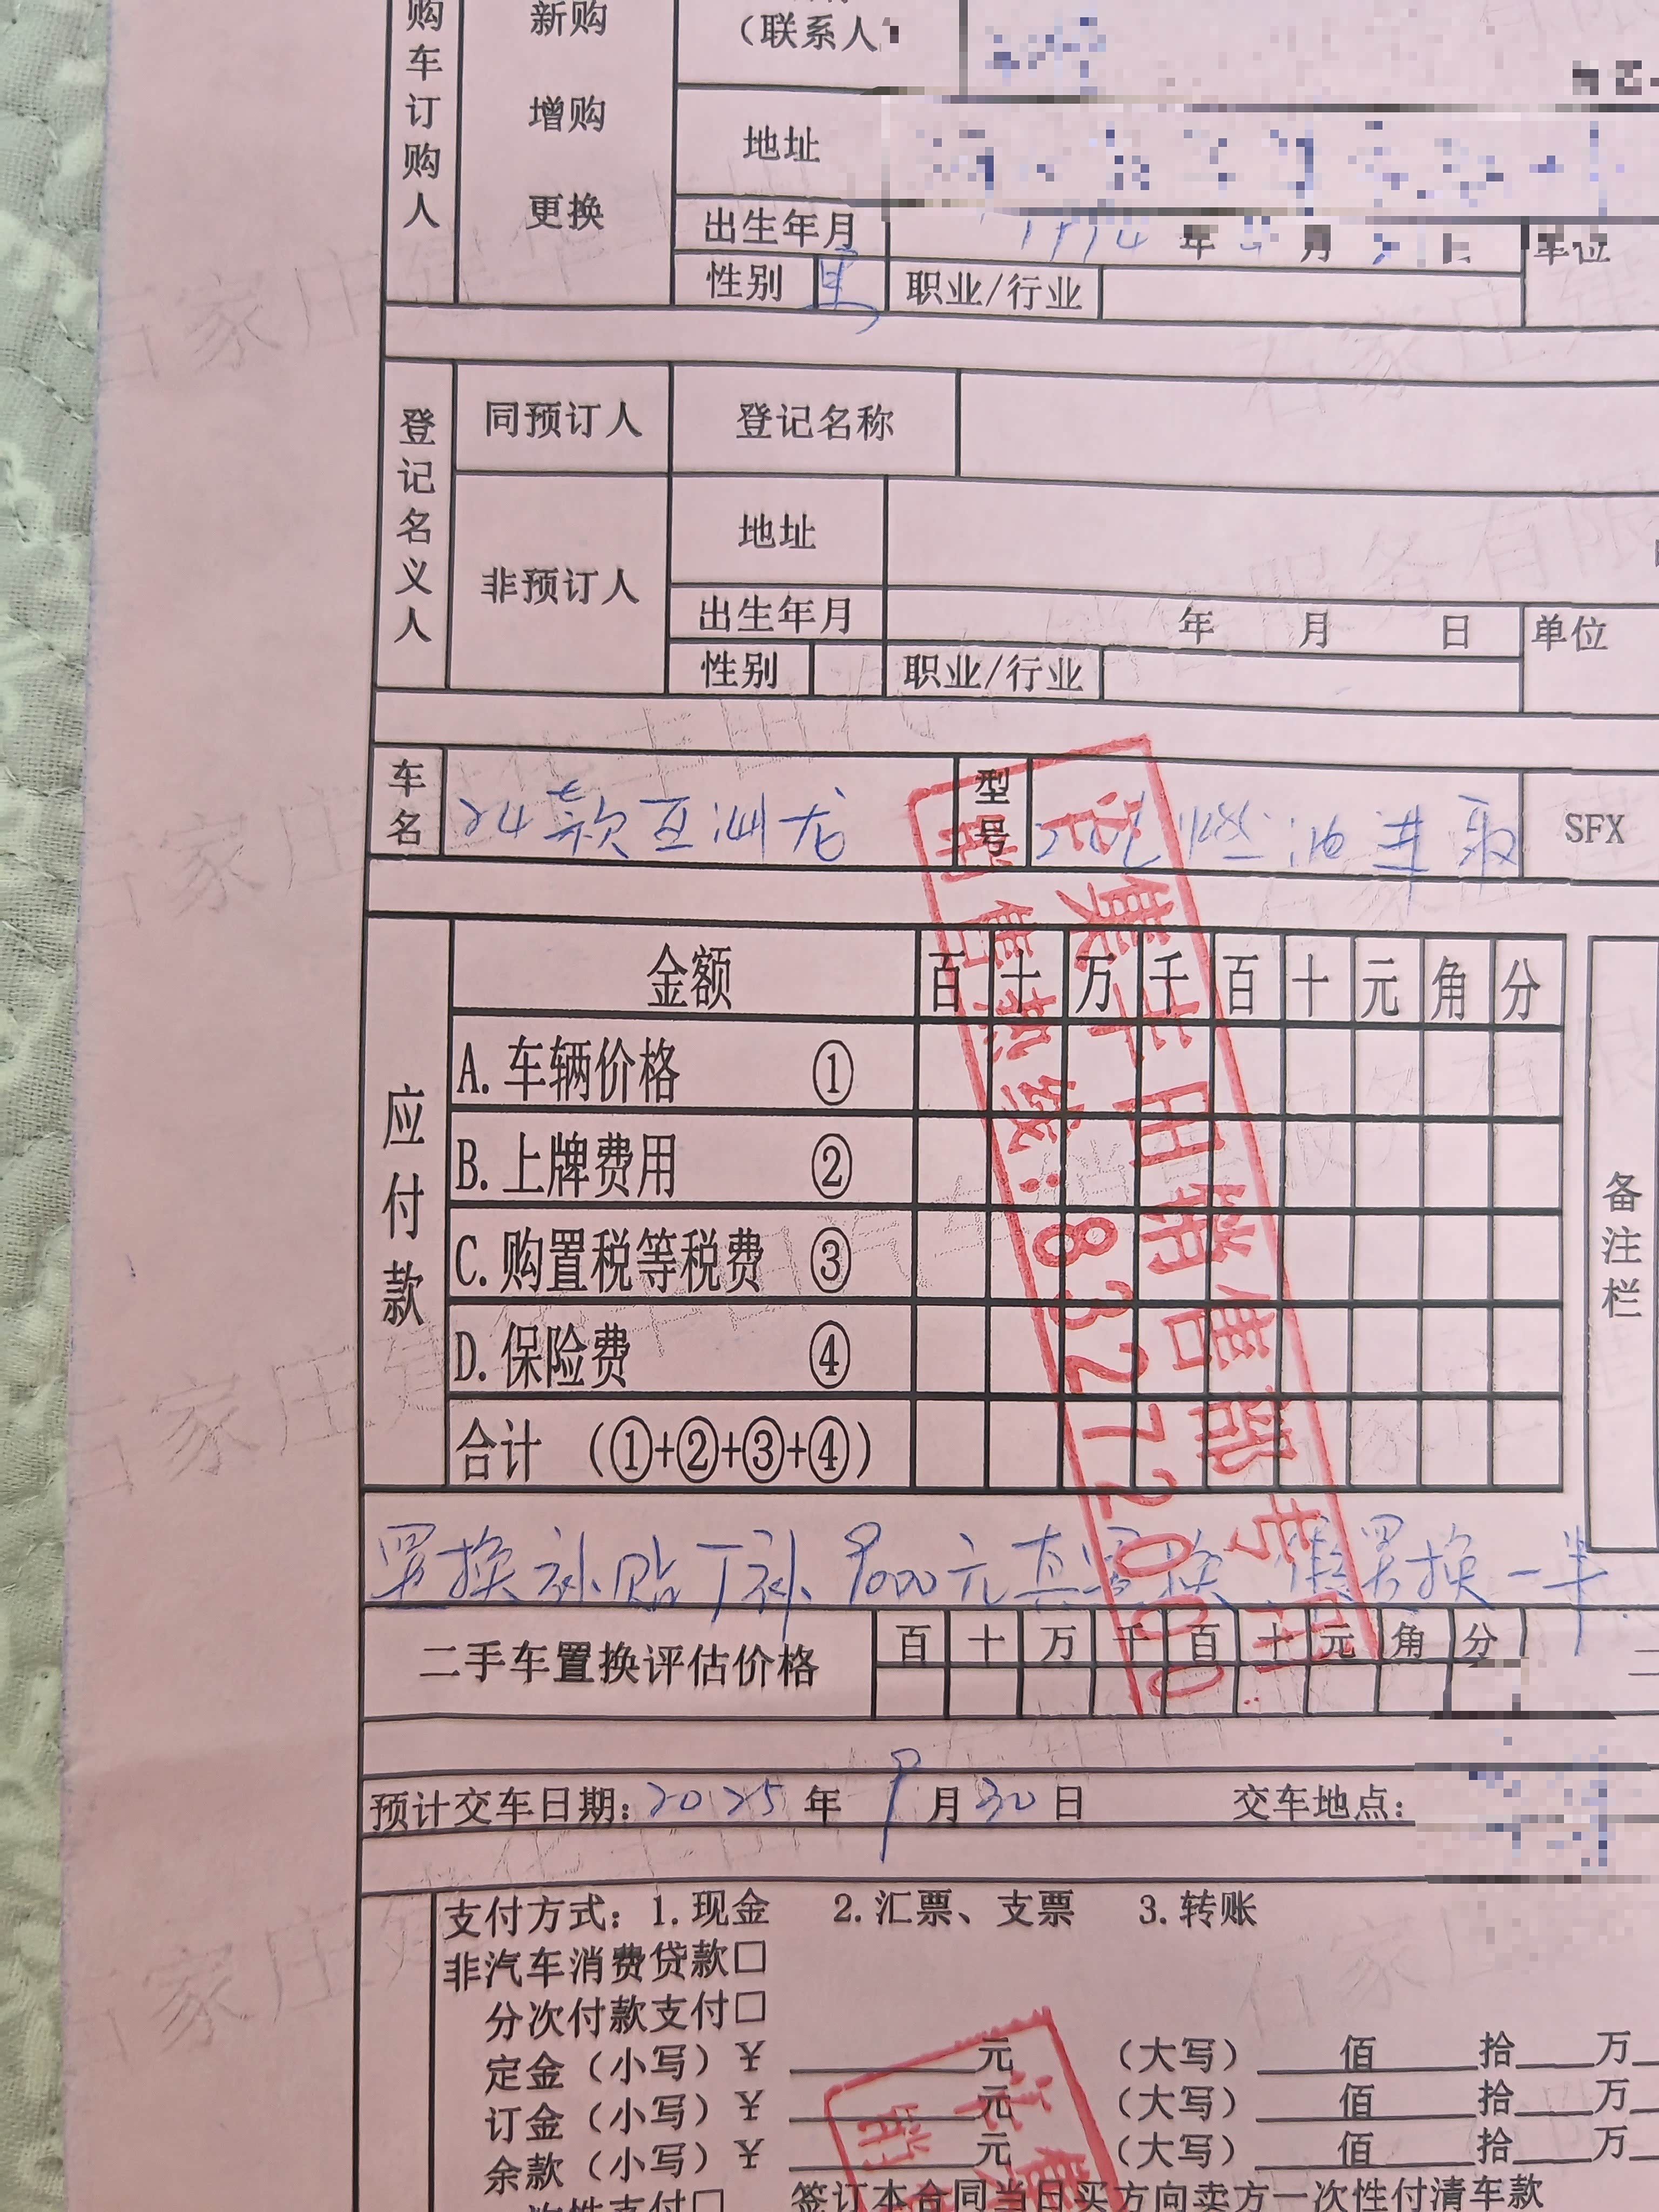 购车订购人
新购
增购
更换
（联系人
地址
出生年月
年
月
单位
性别 男
职业/行业
登记名义人
同预订人
登记名称
非预订人
地址
出生年月 年 月 日 单位
性别 职业/行业
车名 24款亚洲龙 型号 燃油进取 SFX
应付款
金额 百 十 万 千 百 十 元 角 分
A.车辆价格 ①
B.上牌费用 ②
C.购置税等税费 ③
D.保险费 ④
合计 （①+②+③+④）
备注栏
销售热线:83272000
集丰田销售部专用
置换补贴厂补9000元真置换 假置换一半
二手车置换评估价格 百 十 万 千 百 十 元 角 分
预计交车日期：2025年9月30日 交车地点：
支付方式：1.现金 2.汇票、支票 3.转账
非汽车消费贷款□
分次付款支付□
定金（小写）￥ 元 （大写） 佰 拾 万
订金（小写）￥ 元 （大写） 佰 拾 万
余款（小写）￥ 元 （大写） 佰 拾 万
签订本合同当日买方向卖方一次性付清车款